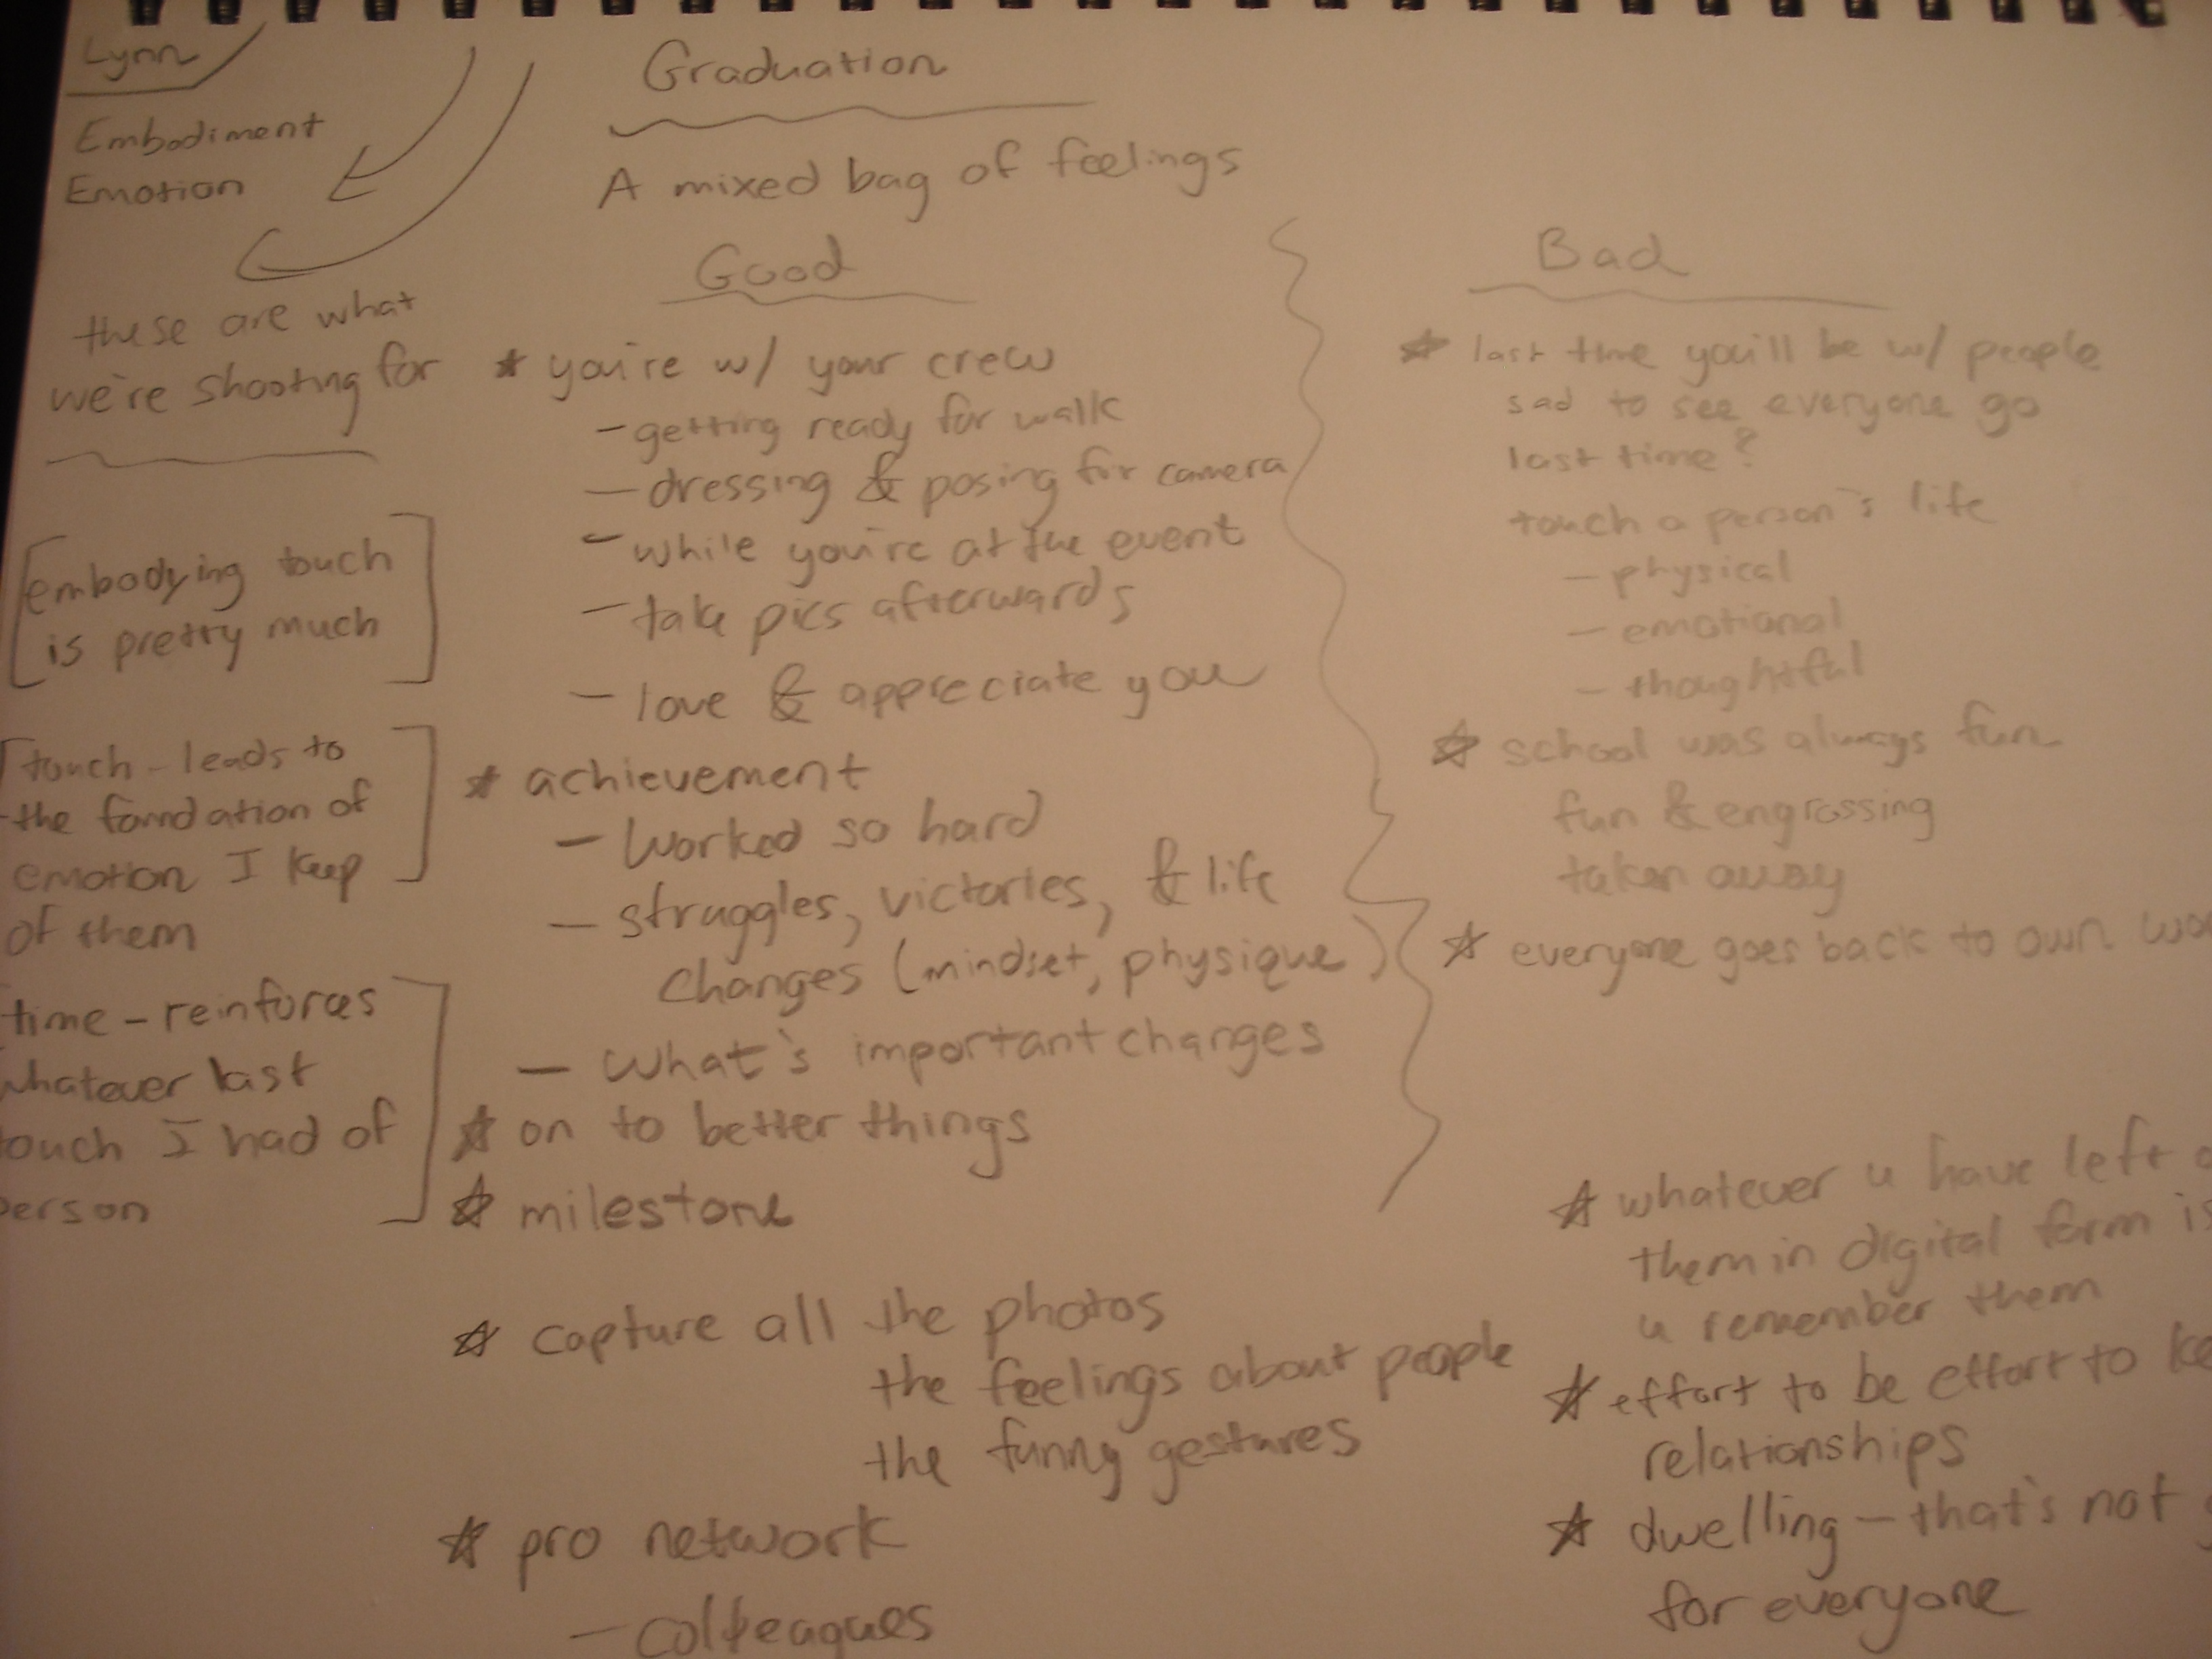 Lynn
Embodiment
Emotion
these are what
we're shooting for
[embodying touch
is pretty much]
[touch - leads to
the foundation of
emotion I keep]
of them
time - reinforces
whatever last
touch I had of
person
Graduation
A mixed bag of feelings
Good
* you're w/ your crew
- getting ready for walk
- dressing & posing for camera
- while you're at the event
- take pics afterwards
- love & appreciate you
* achievement
- Worked so hard
- struggles, victories, & life
changes (mindset, physique)
- What's important changes
* on to better things
* milestone
* capture all the photos
the feelings about people
the funny gestures
* pro network
- colleagues
Bad
* last time you'll be w/ people
sad to see everyone go
last time?
touch a person's life
- physical
- emotional
- thoughtful
* school was always fun
fun & engrossing
taken away
* everyone goes back to own
* whatever u have left
them in digital form is
u remember them
* effort to be effort to
relationships
* dwelling - that's not
for everyone